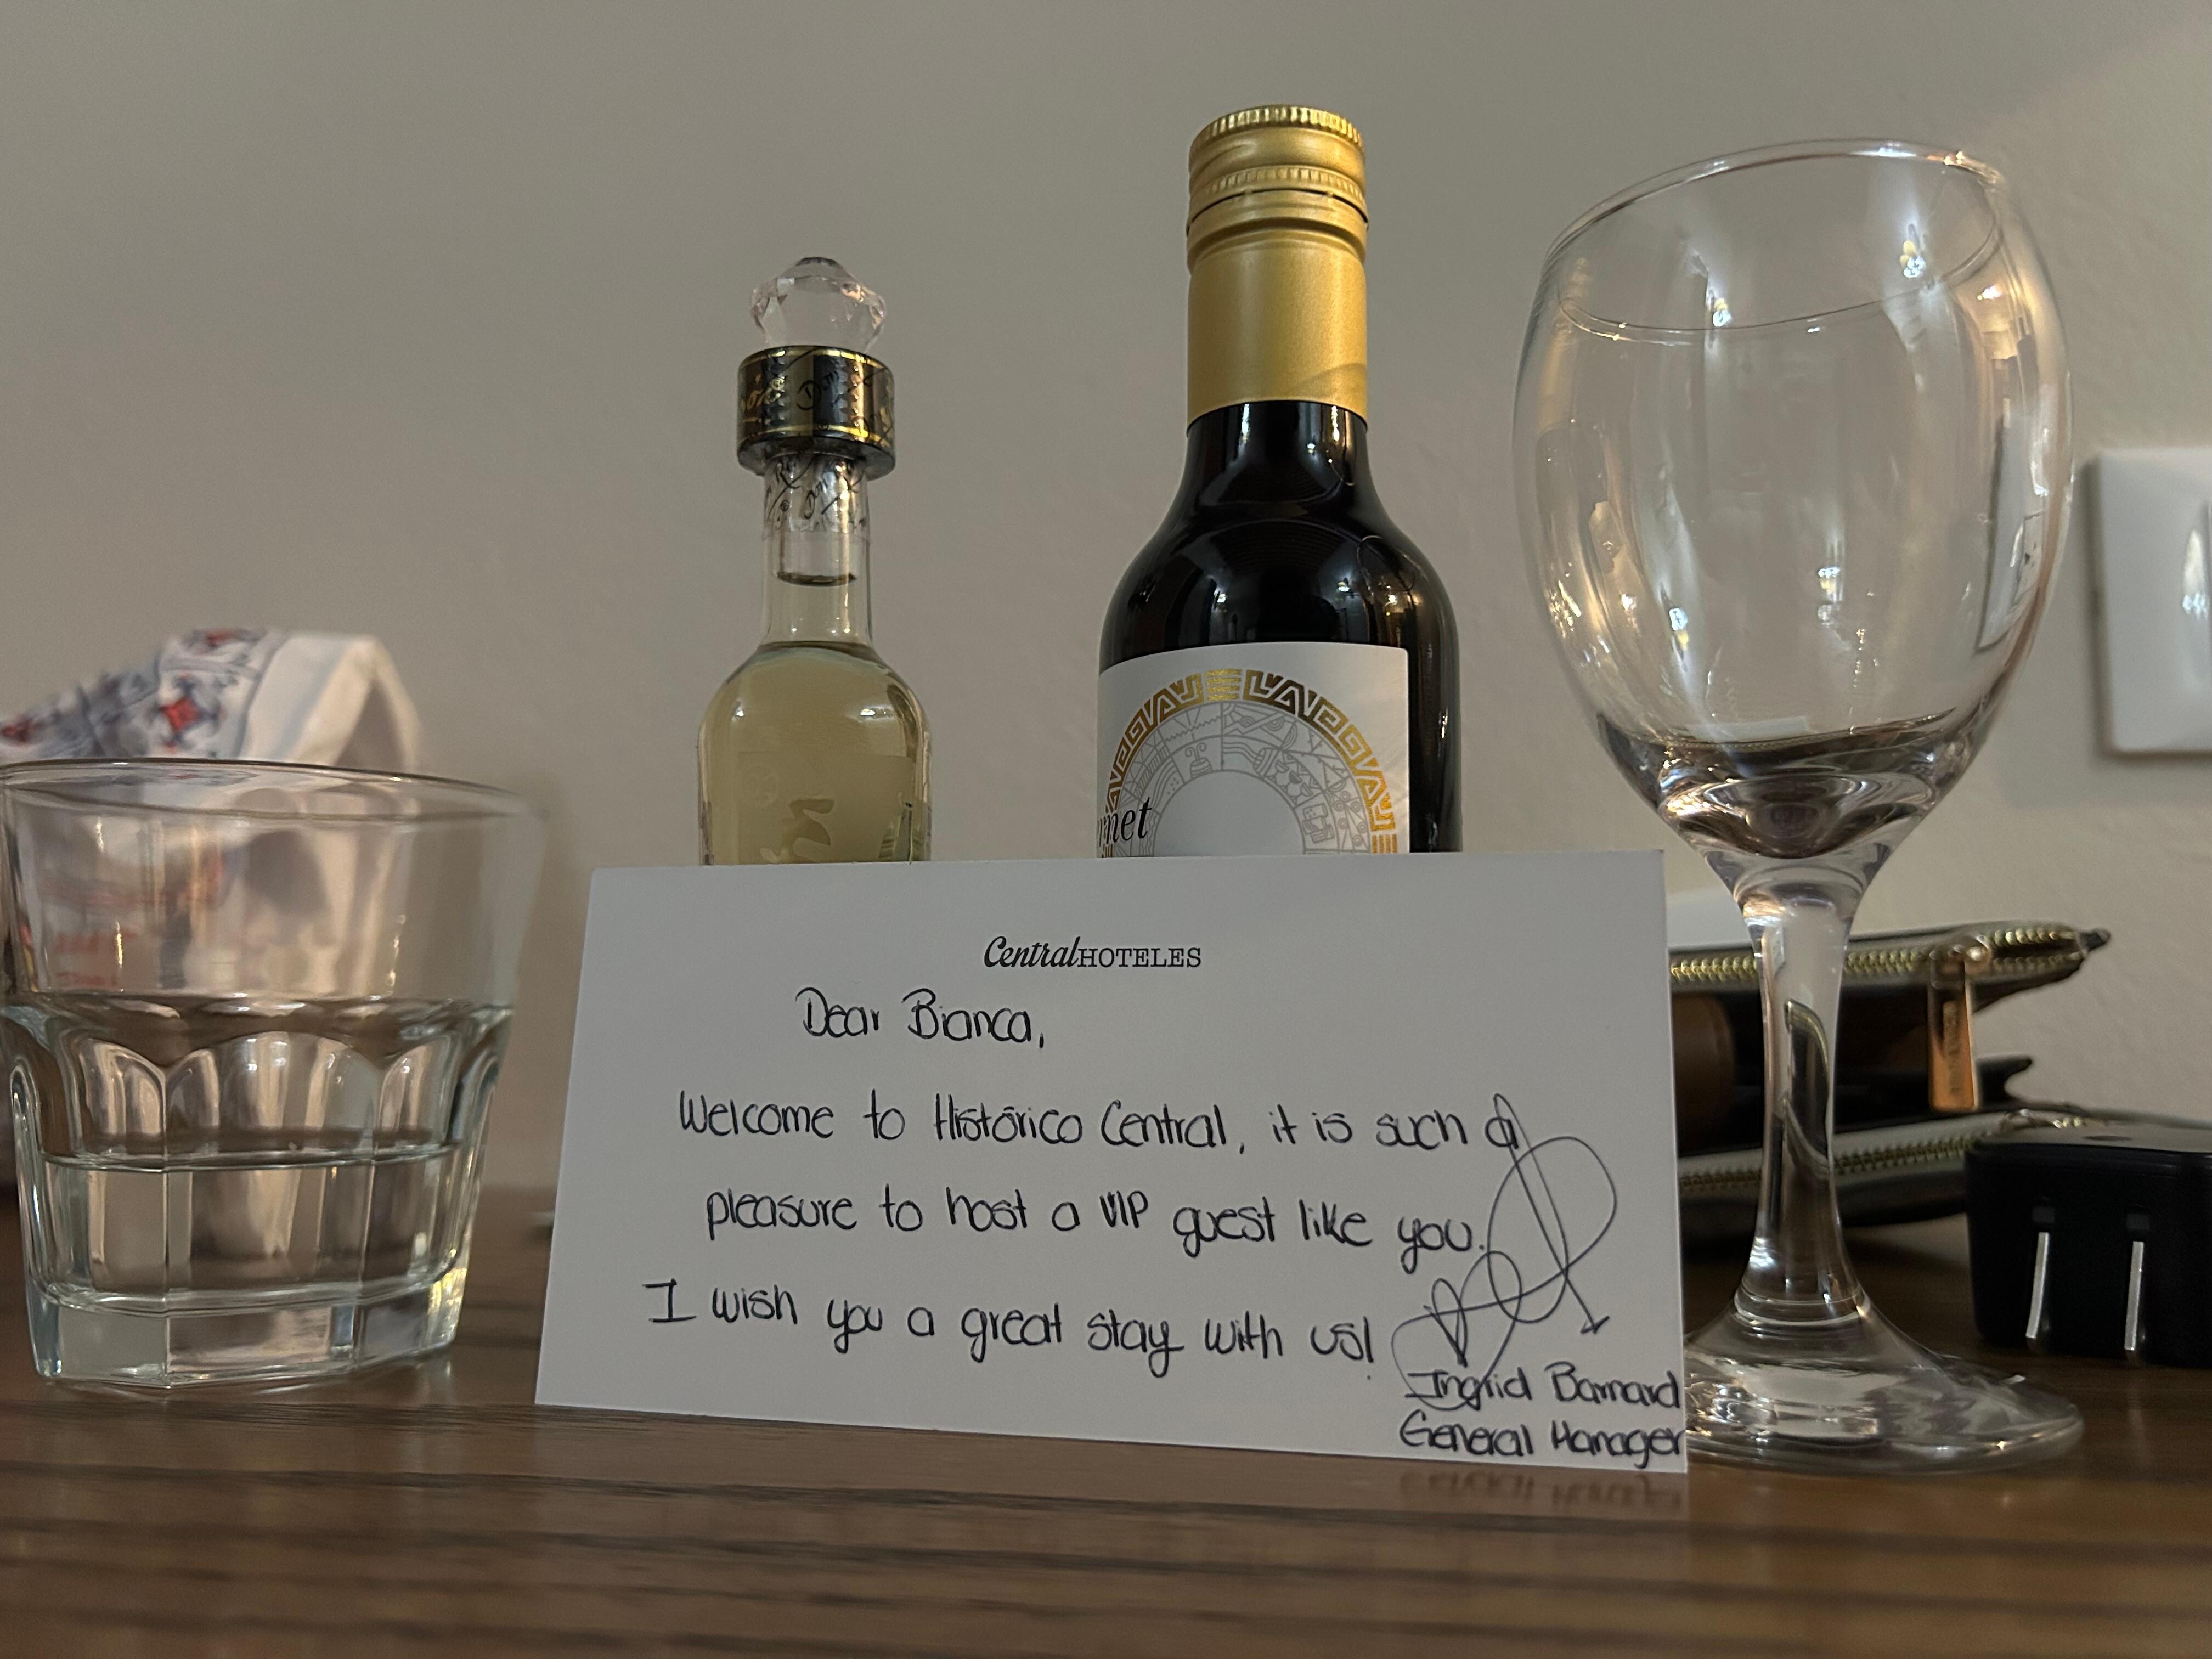 rnet
CentralHOTELES
Dear Bianca,
Welcome to Histórico Central, it is such a
pleasure to host a VIP guest like you.
I wish you a great stay with us!
Ingrid Barnard
General Manager